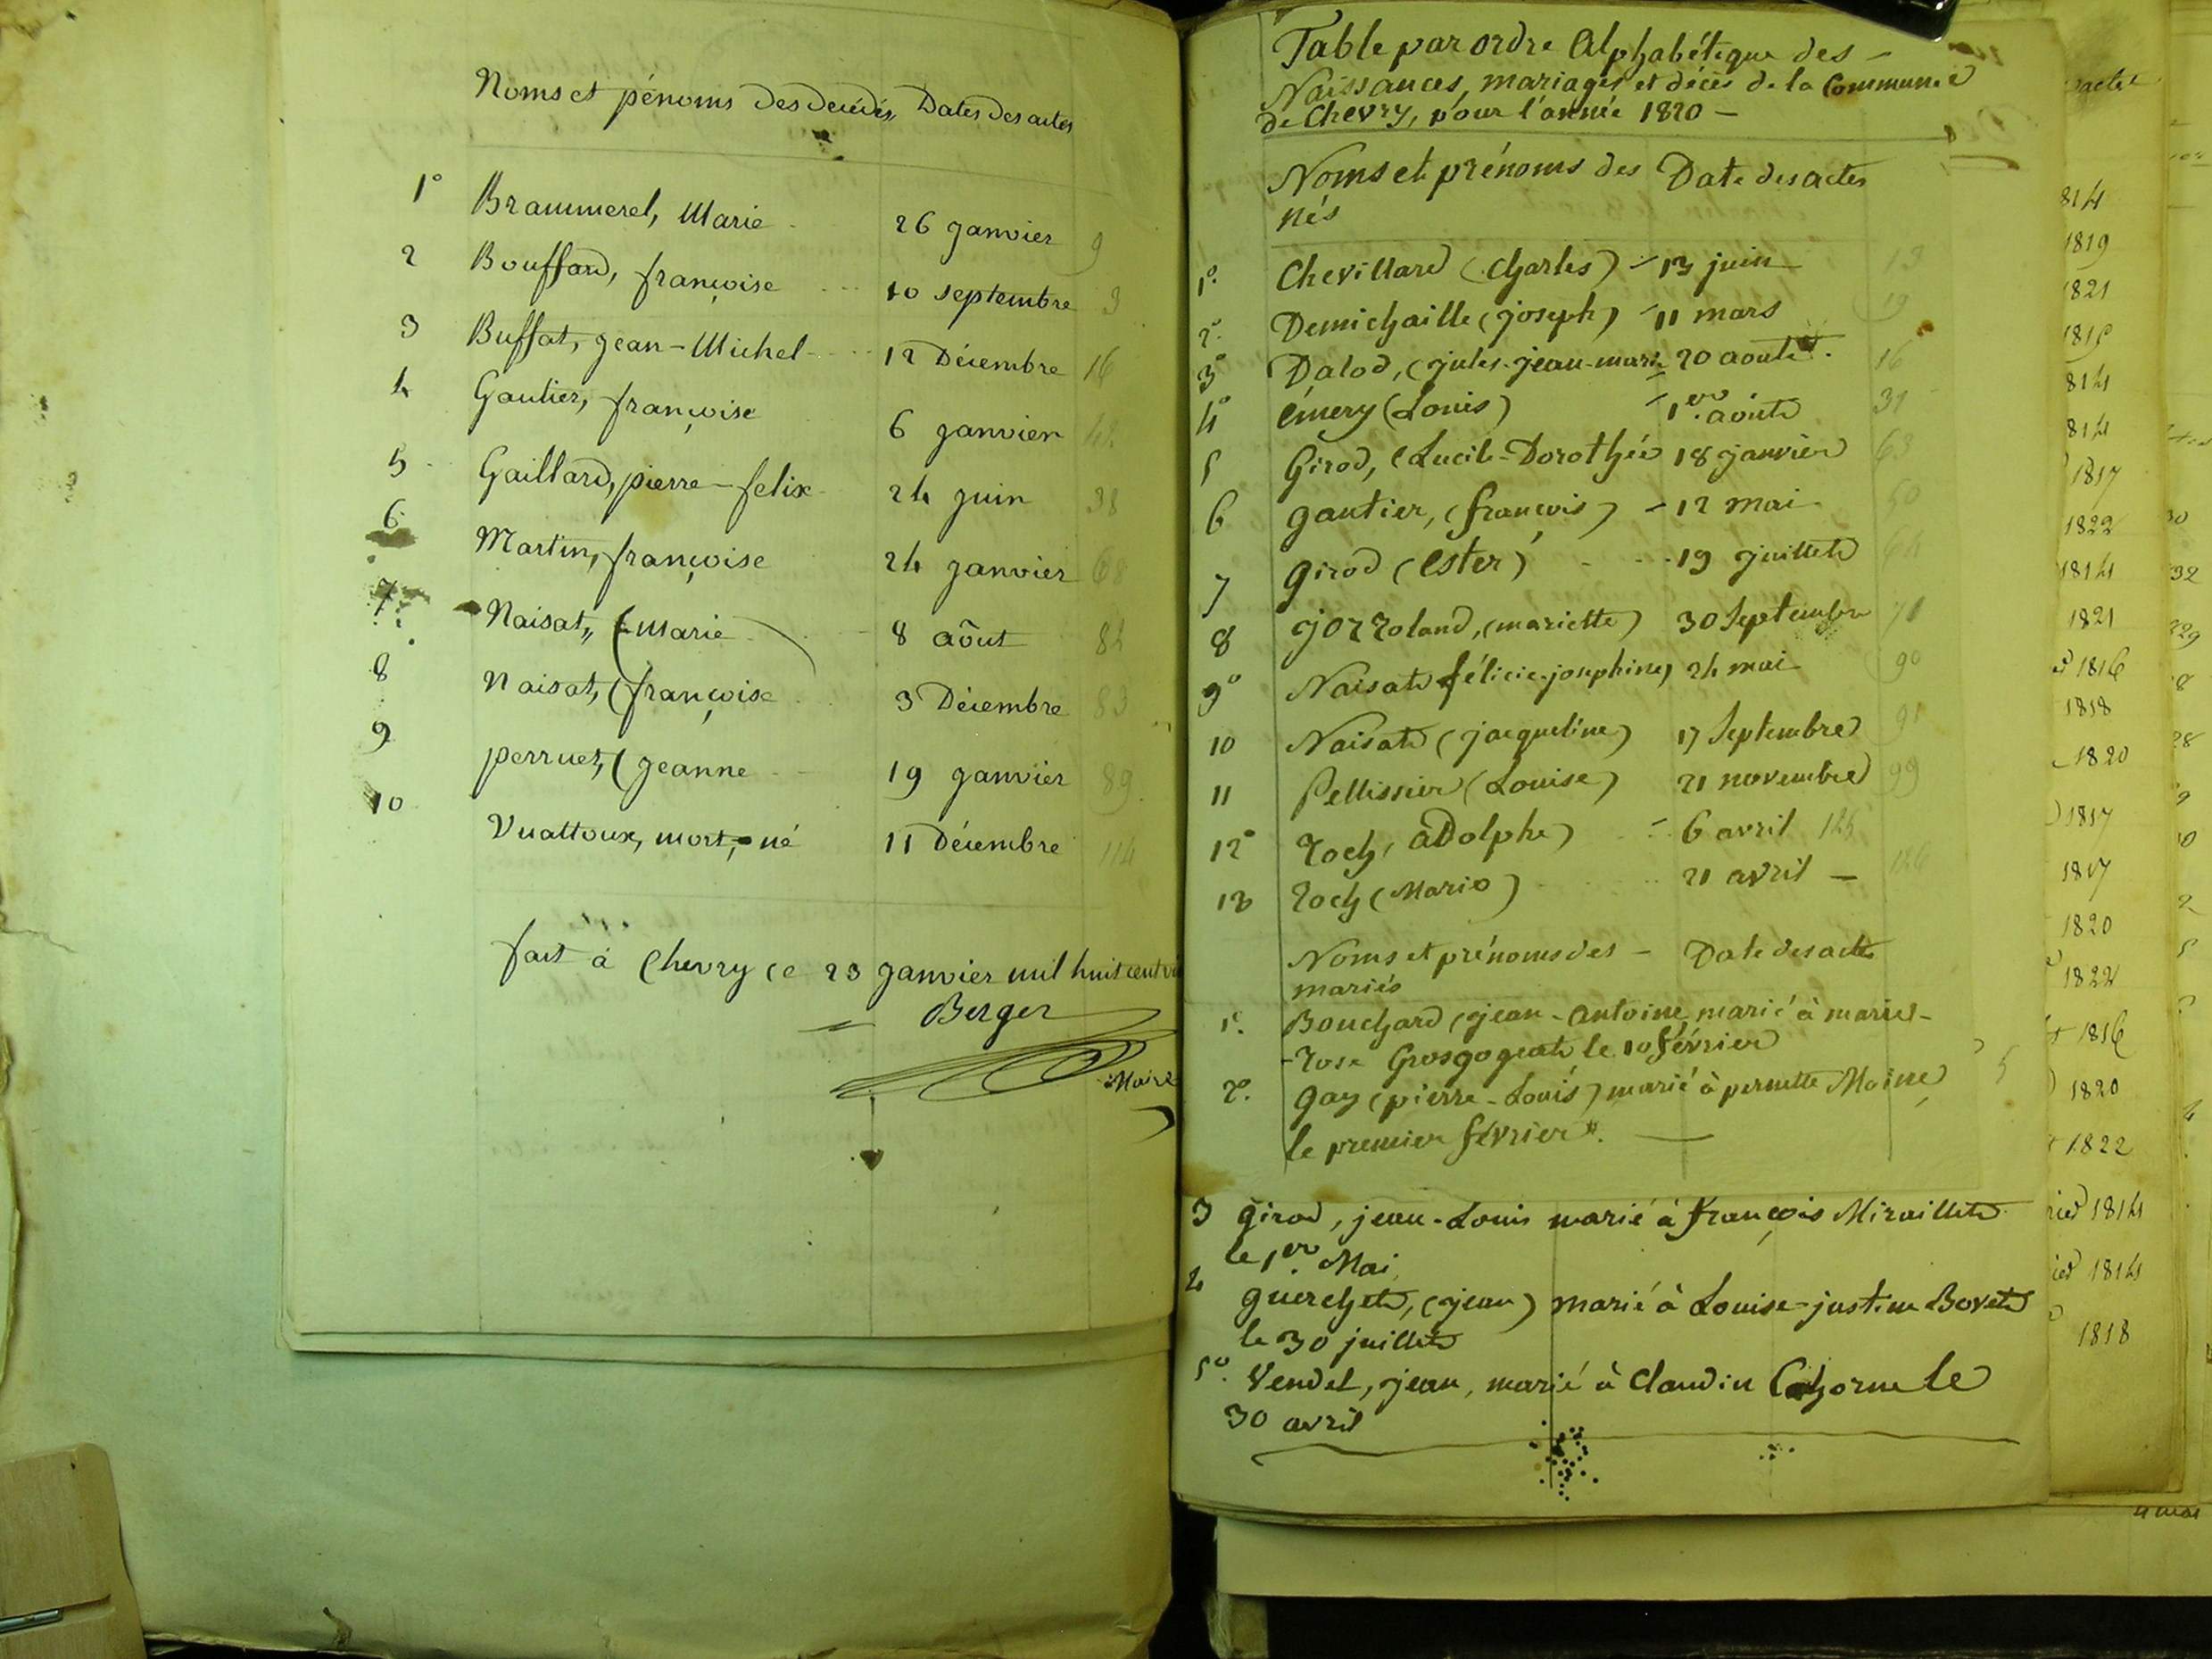 Noms et pénoms des décédés Dates des actes
1° Brammerel, Marie 26 janvier 9
2 Bouffard, françoise 10 septembre 3
3 Buffat, jean-Michel 12 Décembre 16
4 Gautier, françoise 6 janvier 42
5 Gaillard, pierre-felix 24 juin 38
6 Martin, françoise 24 janvier 68
7 Naisat, (Marie 8 aôut 84
8 Naisat, (françoise 3 Décembre 83
9 perruet, (jeanne 19 janvier 89
10 Vuattoux, mort-né 11 Décembre 114
fait à Chevry ce 23 janvier mil huit cent
Berger
Maire
Table par ordre Alphabétique des
Naissances, mariages et décès de la Commune
de Chevry, pour l'année 1820
Noms et prénoms des Date des actes
nés
1° Chevillard (Charles) 13 juin 13
2° Demichaille (joseph) 11 mars 19
3° Dalod, (jules-jean-marie 20 aout 16
4° émery (Louis) 1er août 31
5 Girod, (Lucile-Dorothée 18 janvier 63
6 gautier, (françois) 12 mai 50
7 girod (Ester) 19 juillet 64
8 jozroland, (mariette) 30 Septembre 71
9° Naisat félicie-josephine) 24 mai 90
10 Naisat (jacqueline) 17 Septembre 91
11 Pellissier (Louise) 21 novembre 99
12° roch, adolphe) 6 avril 125
13 roch (Marie) 21 avril 126
Noms et prénoms des Date des actes
mariés
1°. Bouchard (jean-antoine, marié à marie-
-rose Grosgogeat le 10 février
2°. gay (pierre-Louis) marié à pernette Moine, 5
le premier février.
3 girod, jean-Louis marié à françois Miraillet
le 1er Mai
4 guerchet, (jean) marié à Louise-justine Bovet
le 30 juillet
5°. Vendel, jean, marié à Claudin le
30 avril
814
1819
1821
1815
814
814
1817
1822
1814
1821
1816
1818
1820
1817
1817
1820
1822
1816
1820
1822
1814
1814
1818